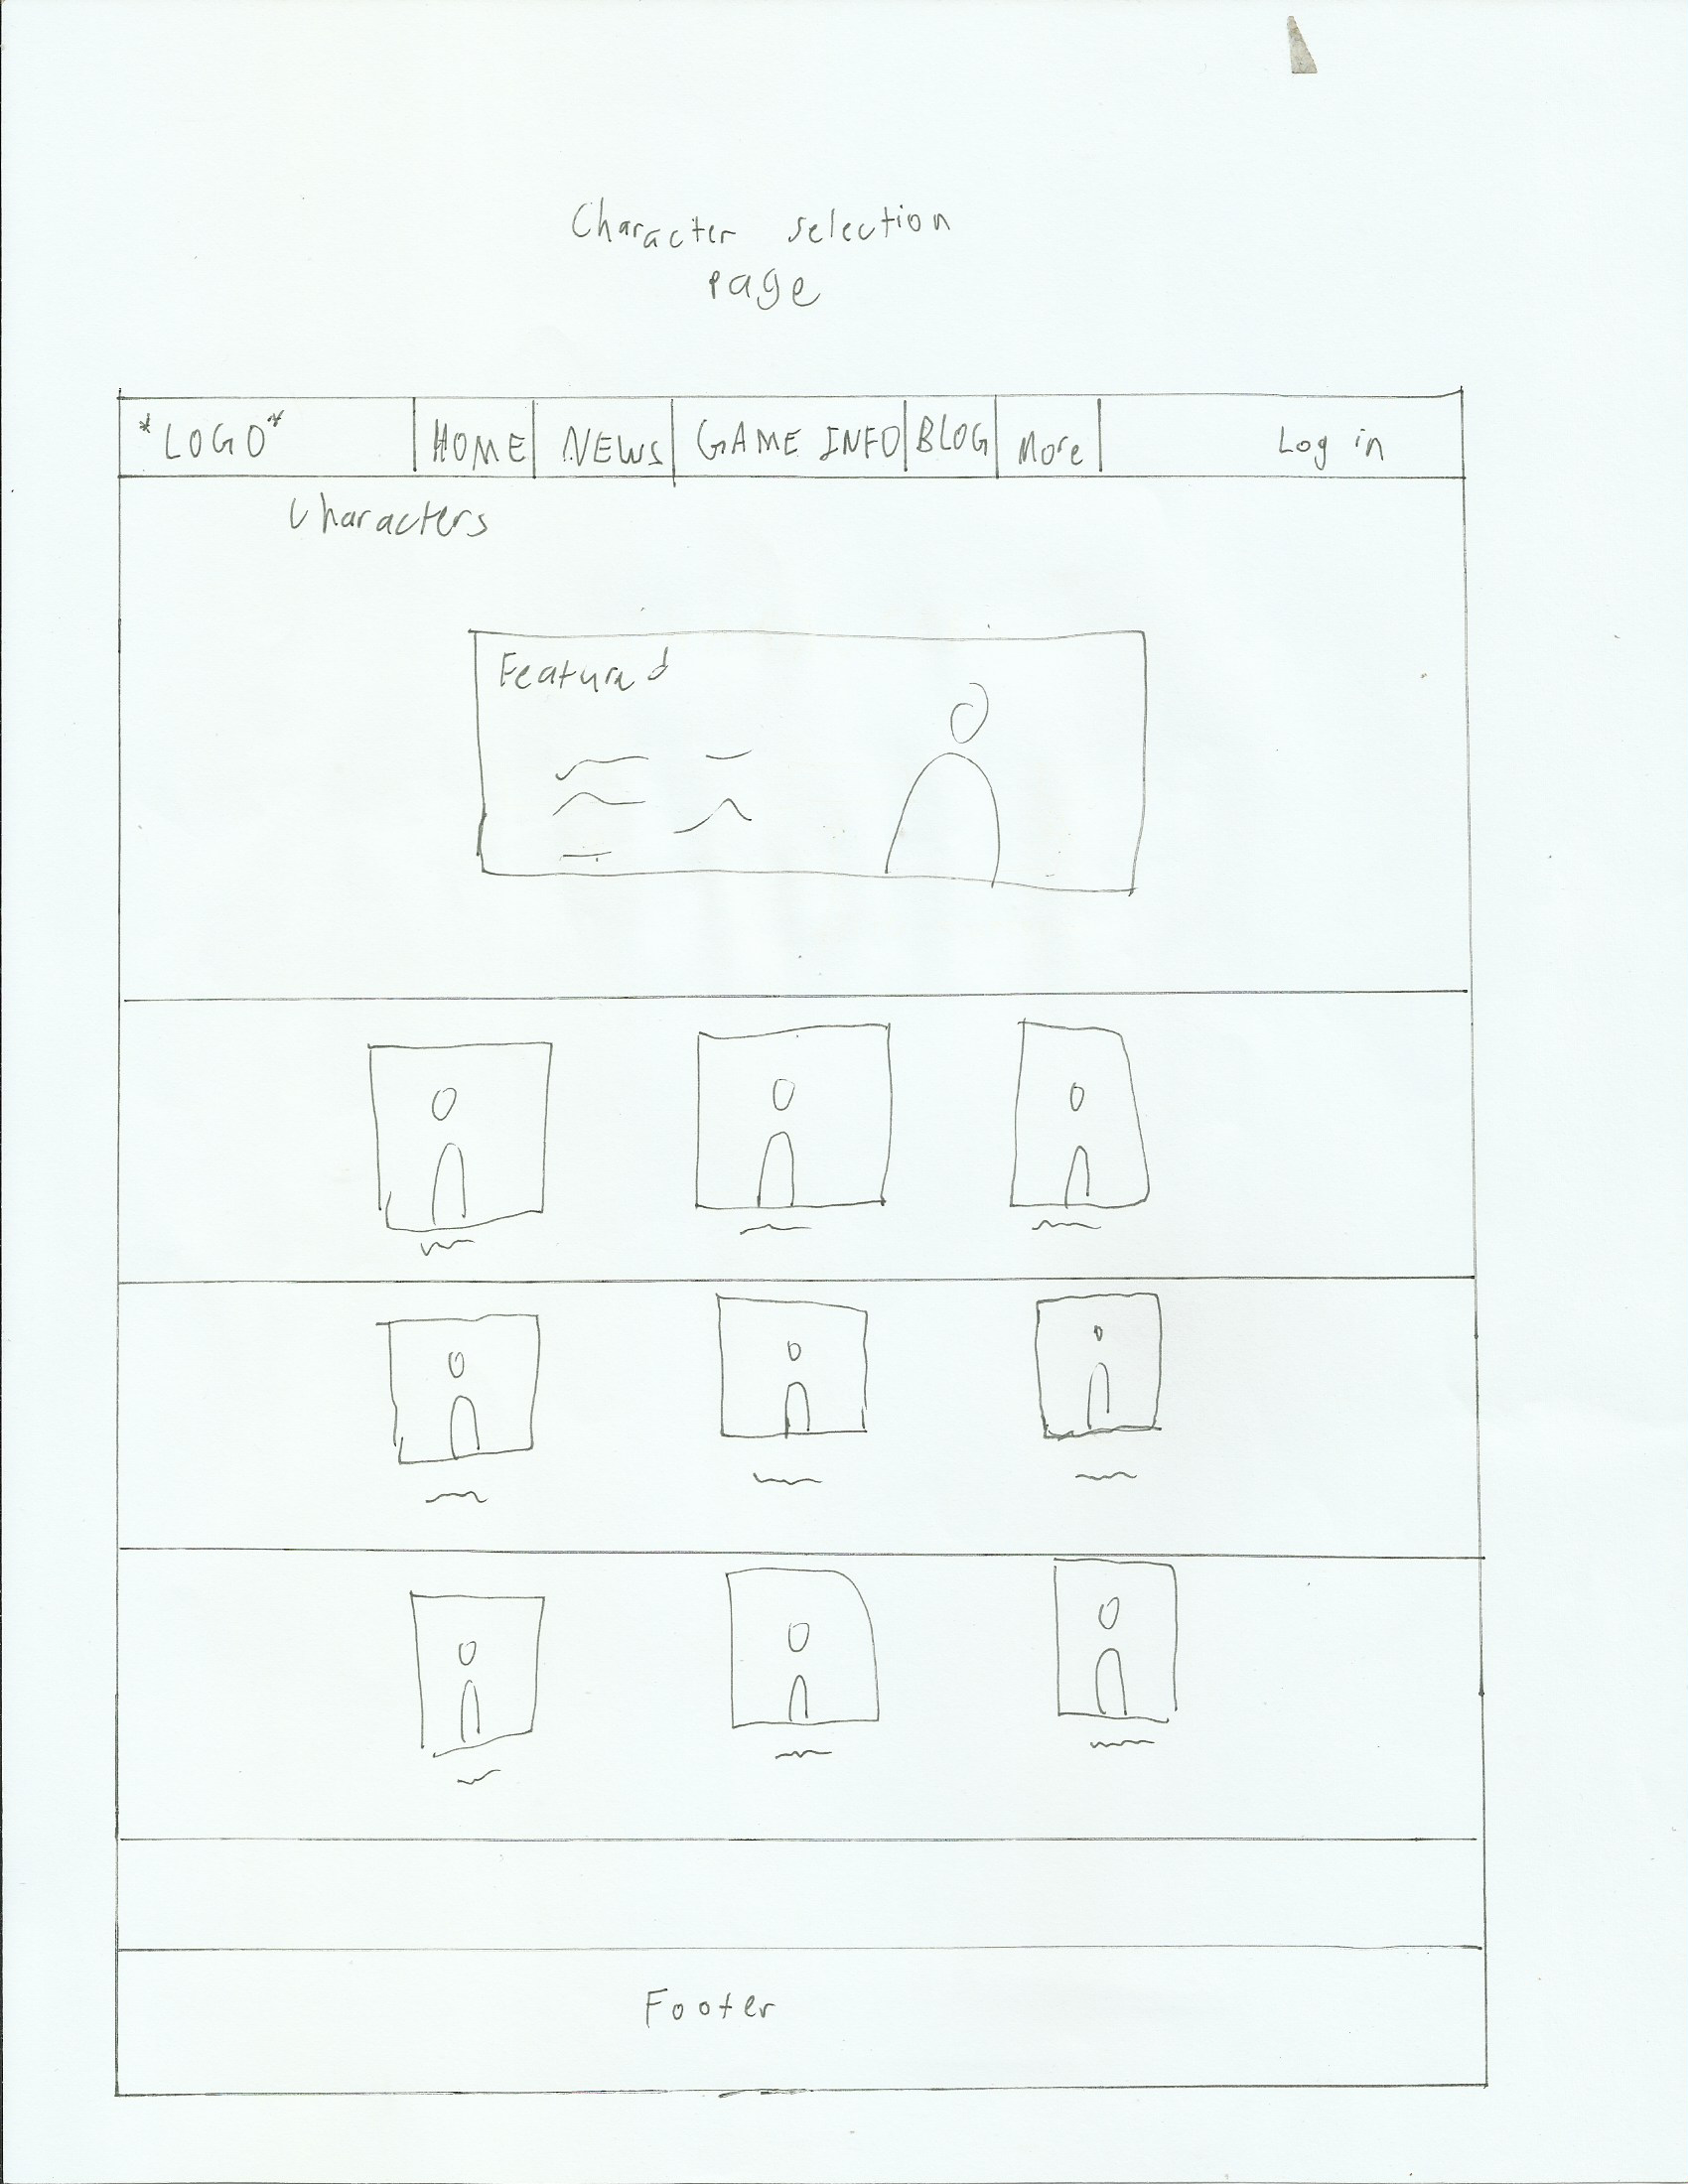 Character selection
page
*LOGO* HOME NEWS GAME INFO BLOG More Log in
Characters
Featured
Footer